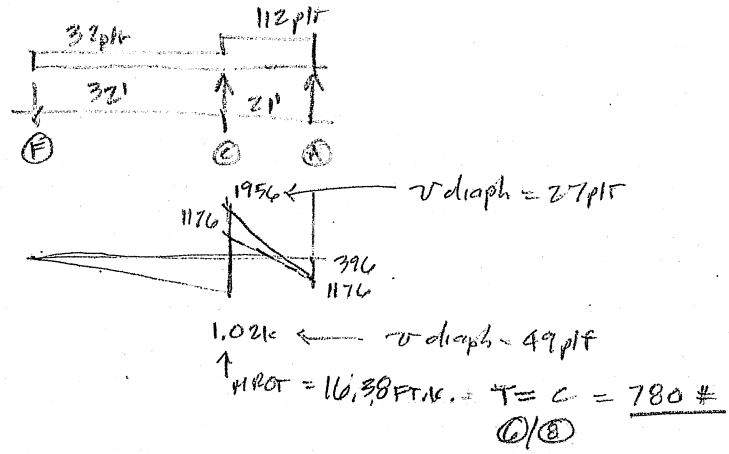 112plf
32plf
32' 21'
F C A
1956 ← v diaph = 27plf
1176
396
1176
1.02k ← v diaph = 49plf
↑ MROT = 16.38 FT.K. = T = C = 780 #
6/8